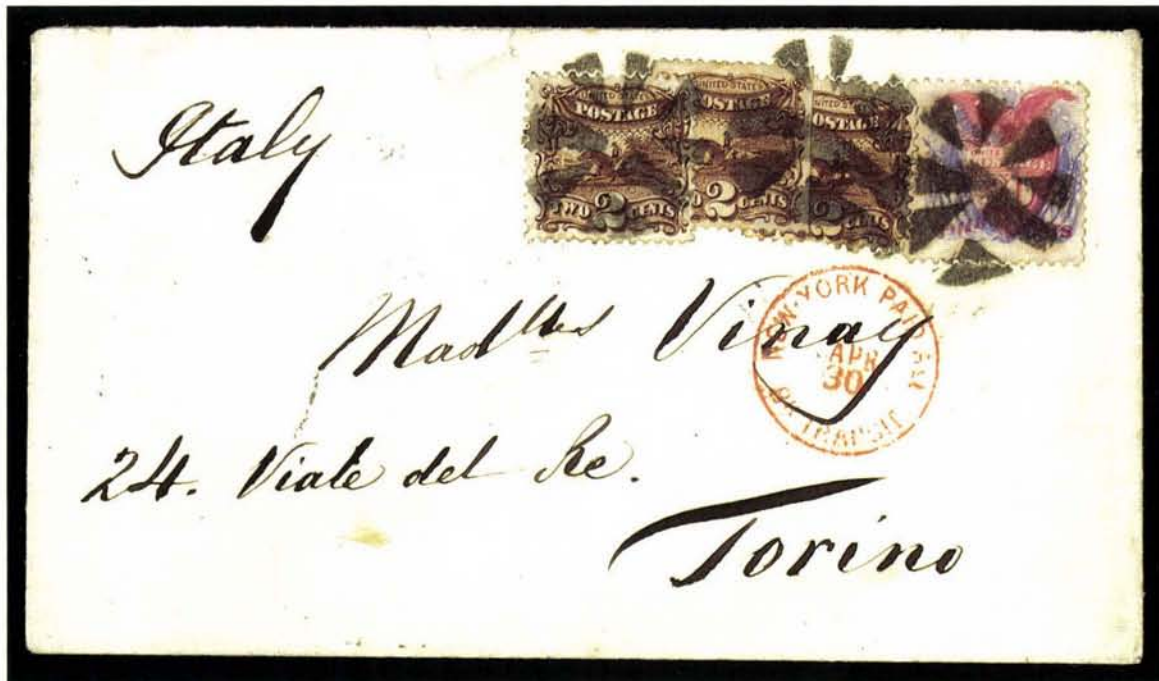 Italy
UNITED STATES POSTAGE TWO 2 CENTS
UNITED STATES POSTAGE 2 CENTS
UNITED STATES POSTAGE 2 CENTS
NEW YORK PAID ALL
APR
30
BR TRANSIT
Madlles Vinay
24. Viale del Re.
Torino